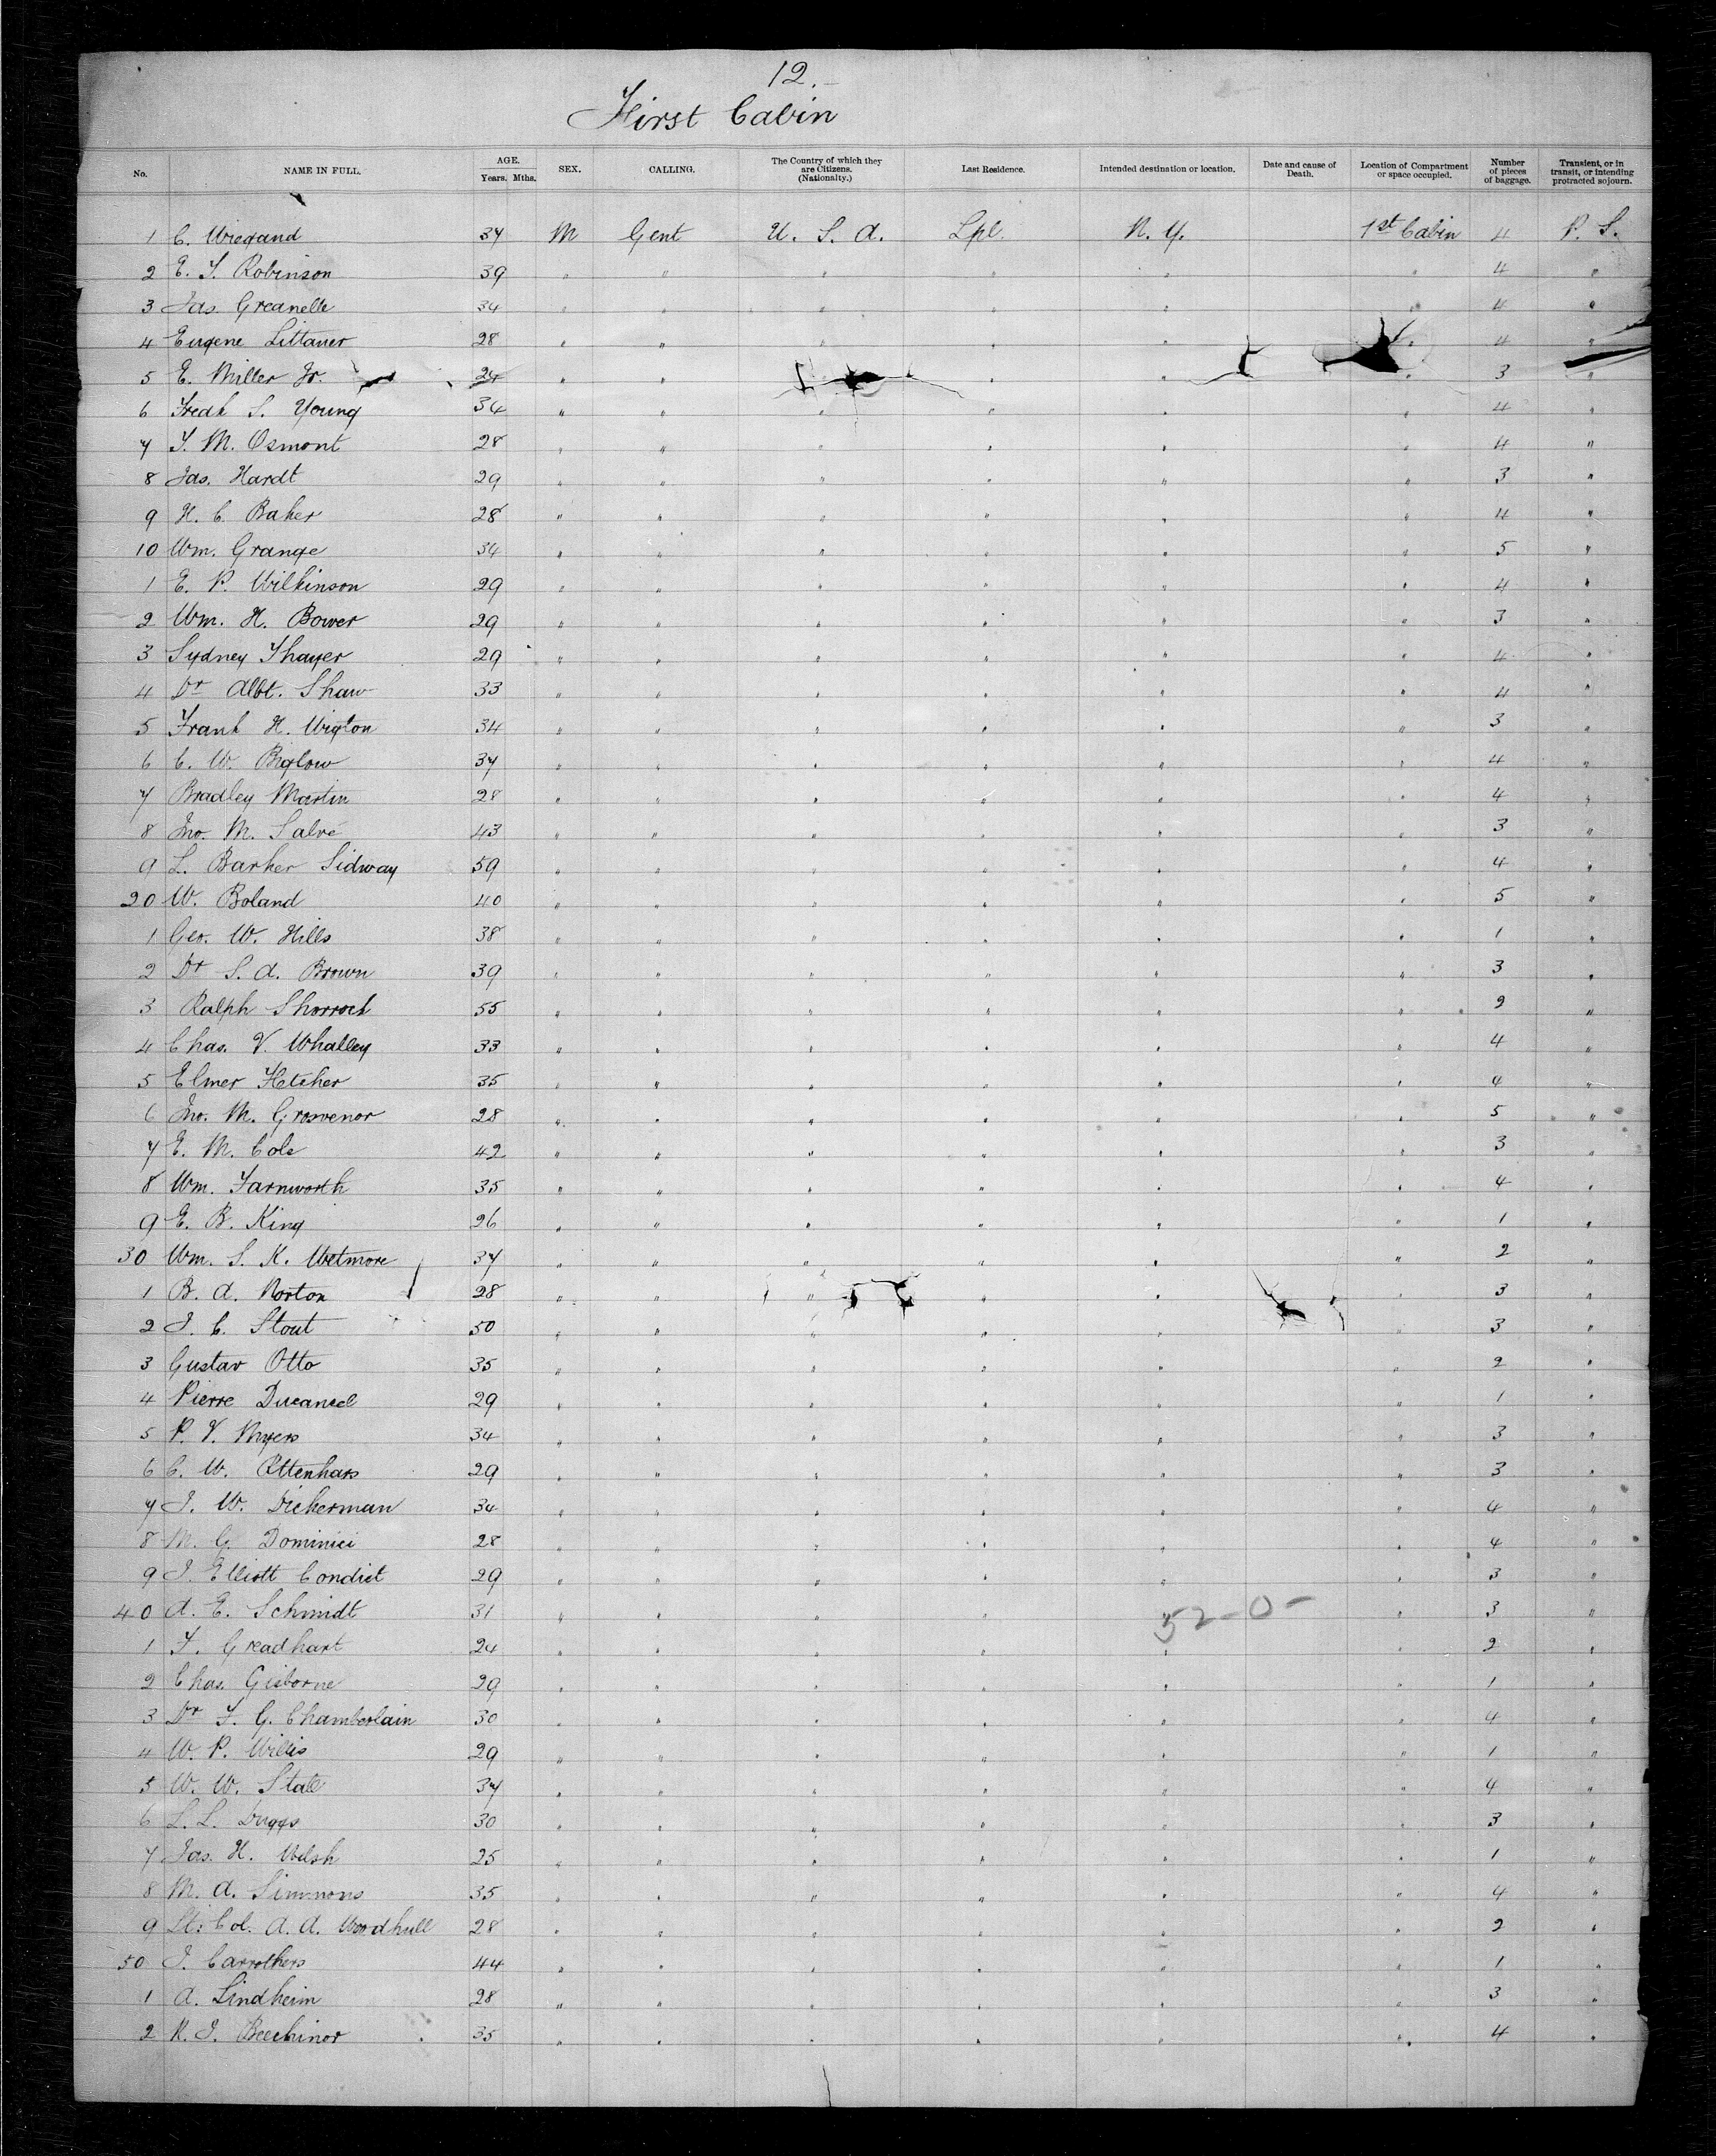 12.
First Cabin
No. NAME IN FULL. AGE. Years. Mths. SEX. CALLING. The Country of which they are Citizens. (Nationalty.) Last Residence. Intended destination or location. Date and cause of Death. Location of Compartment or space occupied. Number of pieces of baggage. Transient, or in transit, or intending protracted sojourn.
1 C. Wiegand 37 M Gent U. S. A. Lpl. N. Y. 1st Cabin 4 P. S.
2 E. T. Robinson 39 " " " " " " 4 "
3 Jas. Greanelle 34 " " " " " " 4 "
4 Eugene Littauer 28 " " " " " " 4 "
5 E. Miller Jr. 24 " " " " " 3 "
6 Fredk S. Young 34 " " " " " " 4 "
7 T. M. Osmont 28 " " " " " " 4 "
8 Jas. Hardt 29 " " " " " " 3 "
9 H. C. Baker 28 " " " " " " 4 "
10 Wm. Grange 34 " " " " " " 5 "
1 E. P. Wilkinson 29 " " " " " " 4 "
2 Wm. H. Bower 29 " " " " " " 3 "
3 Sydney Thayer 29 " " " " " " 4 "
4 Dr Albt. Shaw 33 " " " " " " 4 "
5 Frank H. Wigton 34 " " " " " " 3 "
6 C. W. Biglow 37 " " " " " " 4 "
7 Bradley Martin 28 " " " " " " 4 "
8 Jno. M. Salvé 43 " " " " " " 3 "
9 L. Barker Sidway 59 " " " " " " 4 "
20 W. Boland 40 " " " " " " 5 "
1 Geo. W. Hills 38 " " " " " " 1 "
2 Dr S. A. Brown 39 " " " " " " 3 "
3 Ralph Shorrock 55 " " " " " " 2 "
4 Chas. V. Whalley 33 " " " " " " 4 "
5 Elmer Fletcher 35 " " " " " " 4 "
6 Jno. M. Grosvenor 28 " " " " " " 5 "
7 E. M. Cole 42 " " " " " " 3 "
8 Wm. Farnworth 35 " " " " " " 4 "
9 E. B. King 26 " " " " " " 1 "
30 Wm. S. K. Wetmore 37 " " " " " " 2 "
1 B. A. Norton 28 " " " " " " 3 "
2 J. C. Stout 50 " " " " " " 3 "
3 Gustav Otto 35 " " " " " " 2 "
4 Pierre Ducancel 29 " " " " " " 1 "
5 P. V. Myers 34 " " " " " " 3 "
6 C. W. 29 " " " " " " 3 "
7 J. W. Dickerman 34 " " " " " " 4 "
8 M. G. Dominici 28 " " " " " " 4 "
9 J. Elliott Condict 29 " " " " " " 3 "
40 A. E. Schmidt 31 " " " " " " 3 "
52-0-
1 F. Greadhart 24 " " " " " " 2 "
2 Chas. Gisborne 29 " " " " " " 1 "
3 Dr F. G. Chamberlain 30 " " " " " " 4 "
4 W. P. Willis 29 " " " " " " 1 "
5 W. W. State 37 " " " " " " 4 "
6 L. L. Duggs 30 " " " " " " 3 "
7 Jas. H. Welsh 25 " " " " " " 1 "
8 M. A. Simmons 35 " " " " " " 4 "
9 Lt. Col. A. A. Woodhull 28 " " " " " " 2 "
50 J. Carrothers 44 " " " " " " 1 "
1 A. Lindheim 28 " " " " " " 3 "
2 R. J. Beechinor 35 " " " " " " 4 "